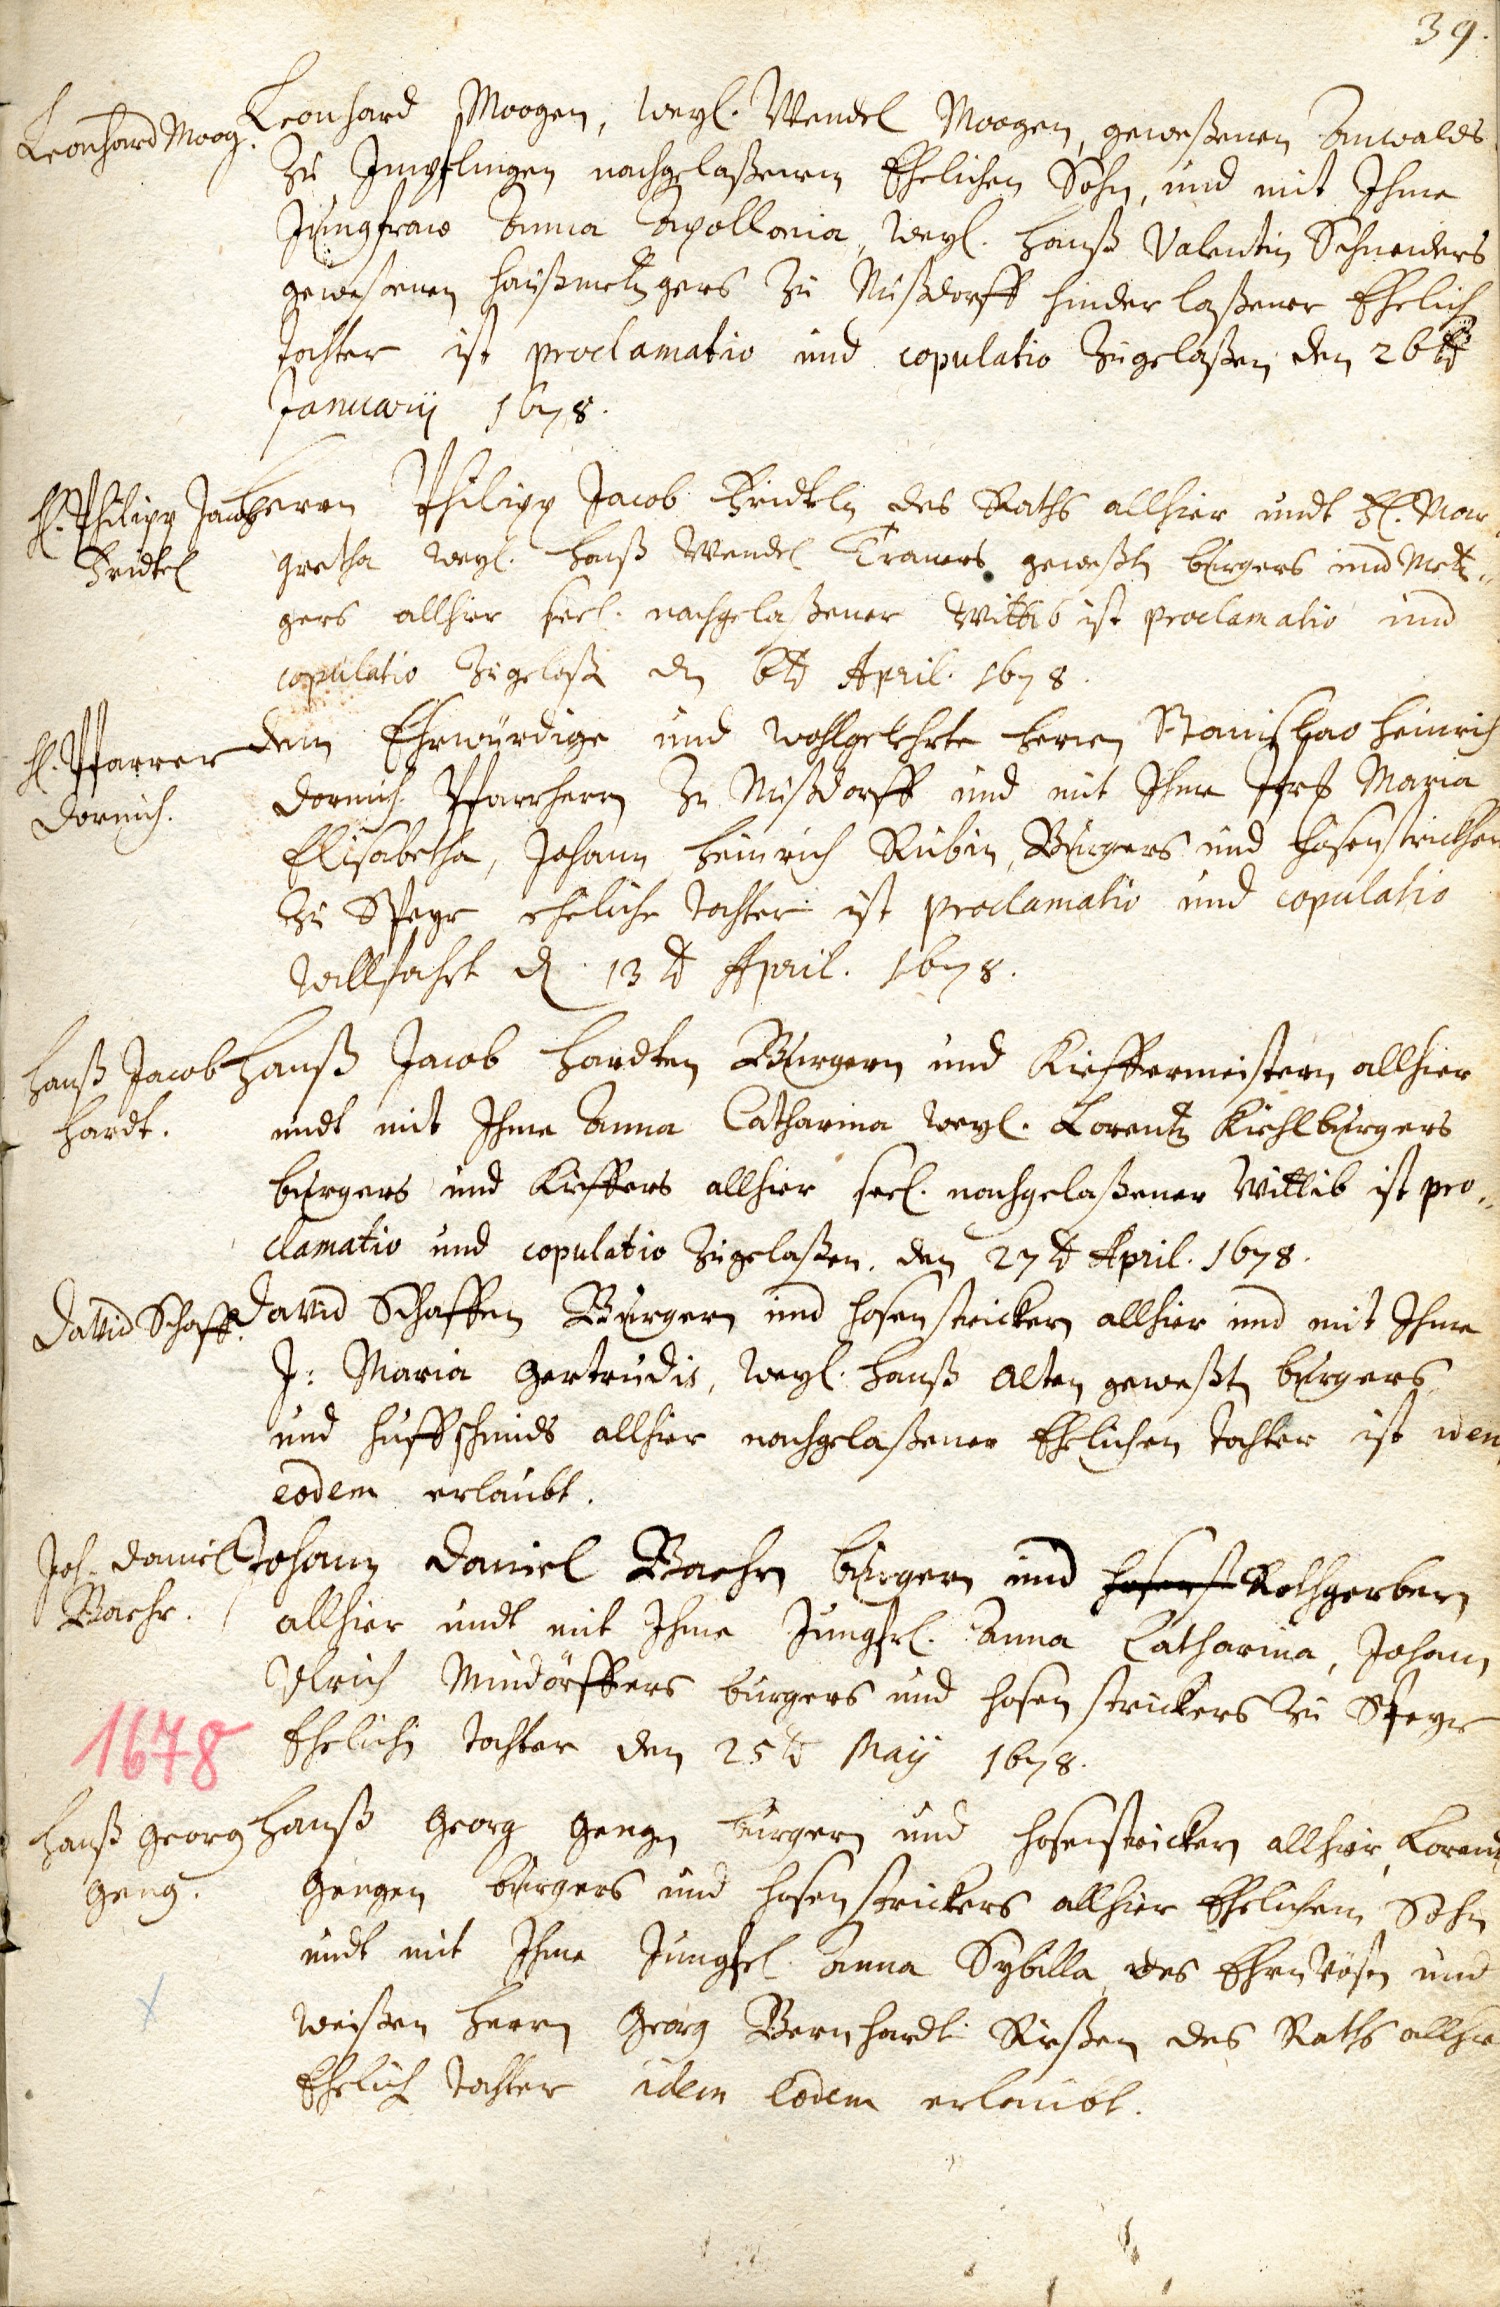 39.
Leonhard Moog.
Leonhard Moogen, weyl. Wendel Moogen, geweßenen Anwalds
zu Impflingen nachgelaßenem Ehelichen Sohn, und mit Ihme
Jungfraw Anna Apollonia, weyl. Hanß Valentin Schneiders
geweßenen Haußmetzgers zu Nußdorff hinderlaßener Ehelich
tochter ist proclamatio und copulatio zugelaßen den 26t
January 1678.
H. Philipp Jacob
Herrn Philipp Jacob des Raths allhier undt Fl. Mar
gretha weyl. Hanß Wendel geweßt burgers und Metz-
gers allhier seel. nachgelaßener Wittib ist proclamatio und
copulatio zugelaß dn 6t April. 1678.
H. Pfarrer
Dornich.
dem Ehrwürdige und wohlgelehrte Herren Stanislao Heinrich
Dornich Pfarrherrn zu Nußdorff und mit Ihme Maria
Elisabetha, Johann Heinrich Rubin, Burgers und hosenstrickhers
zu Speyr eheliche tochter ist proclamatio und copulatio
willfahrt d. 13t April. 1678.
Hanß Jacob
Hardt.
Hanß Jacob Hardten Burgern und Kieffermeistern allhier
undt mit Ihme Anna Catharina weyl. Lorentz Kiehlburgers
burgers und Kieffers allhier seel. nachgelaßener Wittib ist pro-
clamatio und copulatio zugelaßen. den 27t April. 1678.
David Schaff.
David Schaffen Burgern und hosenstrickern allhier und mit Ihme
J: Maria Gertrudis, weyl. Hanß Alten geweßt burgers
und huffschmids allhier nachgelaßener Ehelichen tochter ist idem
eodem erlaubt.
Joh. Daniel
Baehr.
Johann Daniel Baehrn burgern und hosenst Rothgerbern
allhier undt mit Ihme Jungfrl. Anna Catharina, Johann
Ulrich Mindörffers burgers und hosenstrickers zu Speyr
Ehelich tochter den 25t Maij 1678.
1678
Hanß Georg
Geng.
Hanß Georg Gengen burgern und hosenstrickern allhier, Lorentz
Gengen burgers und hosenstrickers allhier Ehelichem Sohn
undt mit Ihme Jungfrl. Anna Sybilla des Ehrnvösten und
weißen Herrn Georg Bernhardt des Raths allhie
Ehelich tochter idem eodem erlaubt.